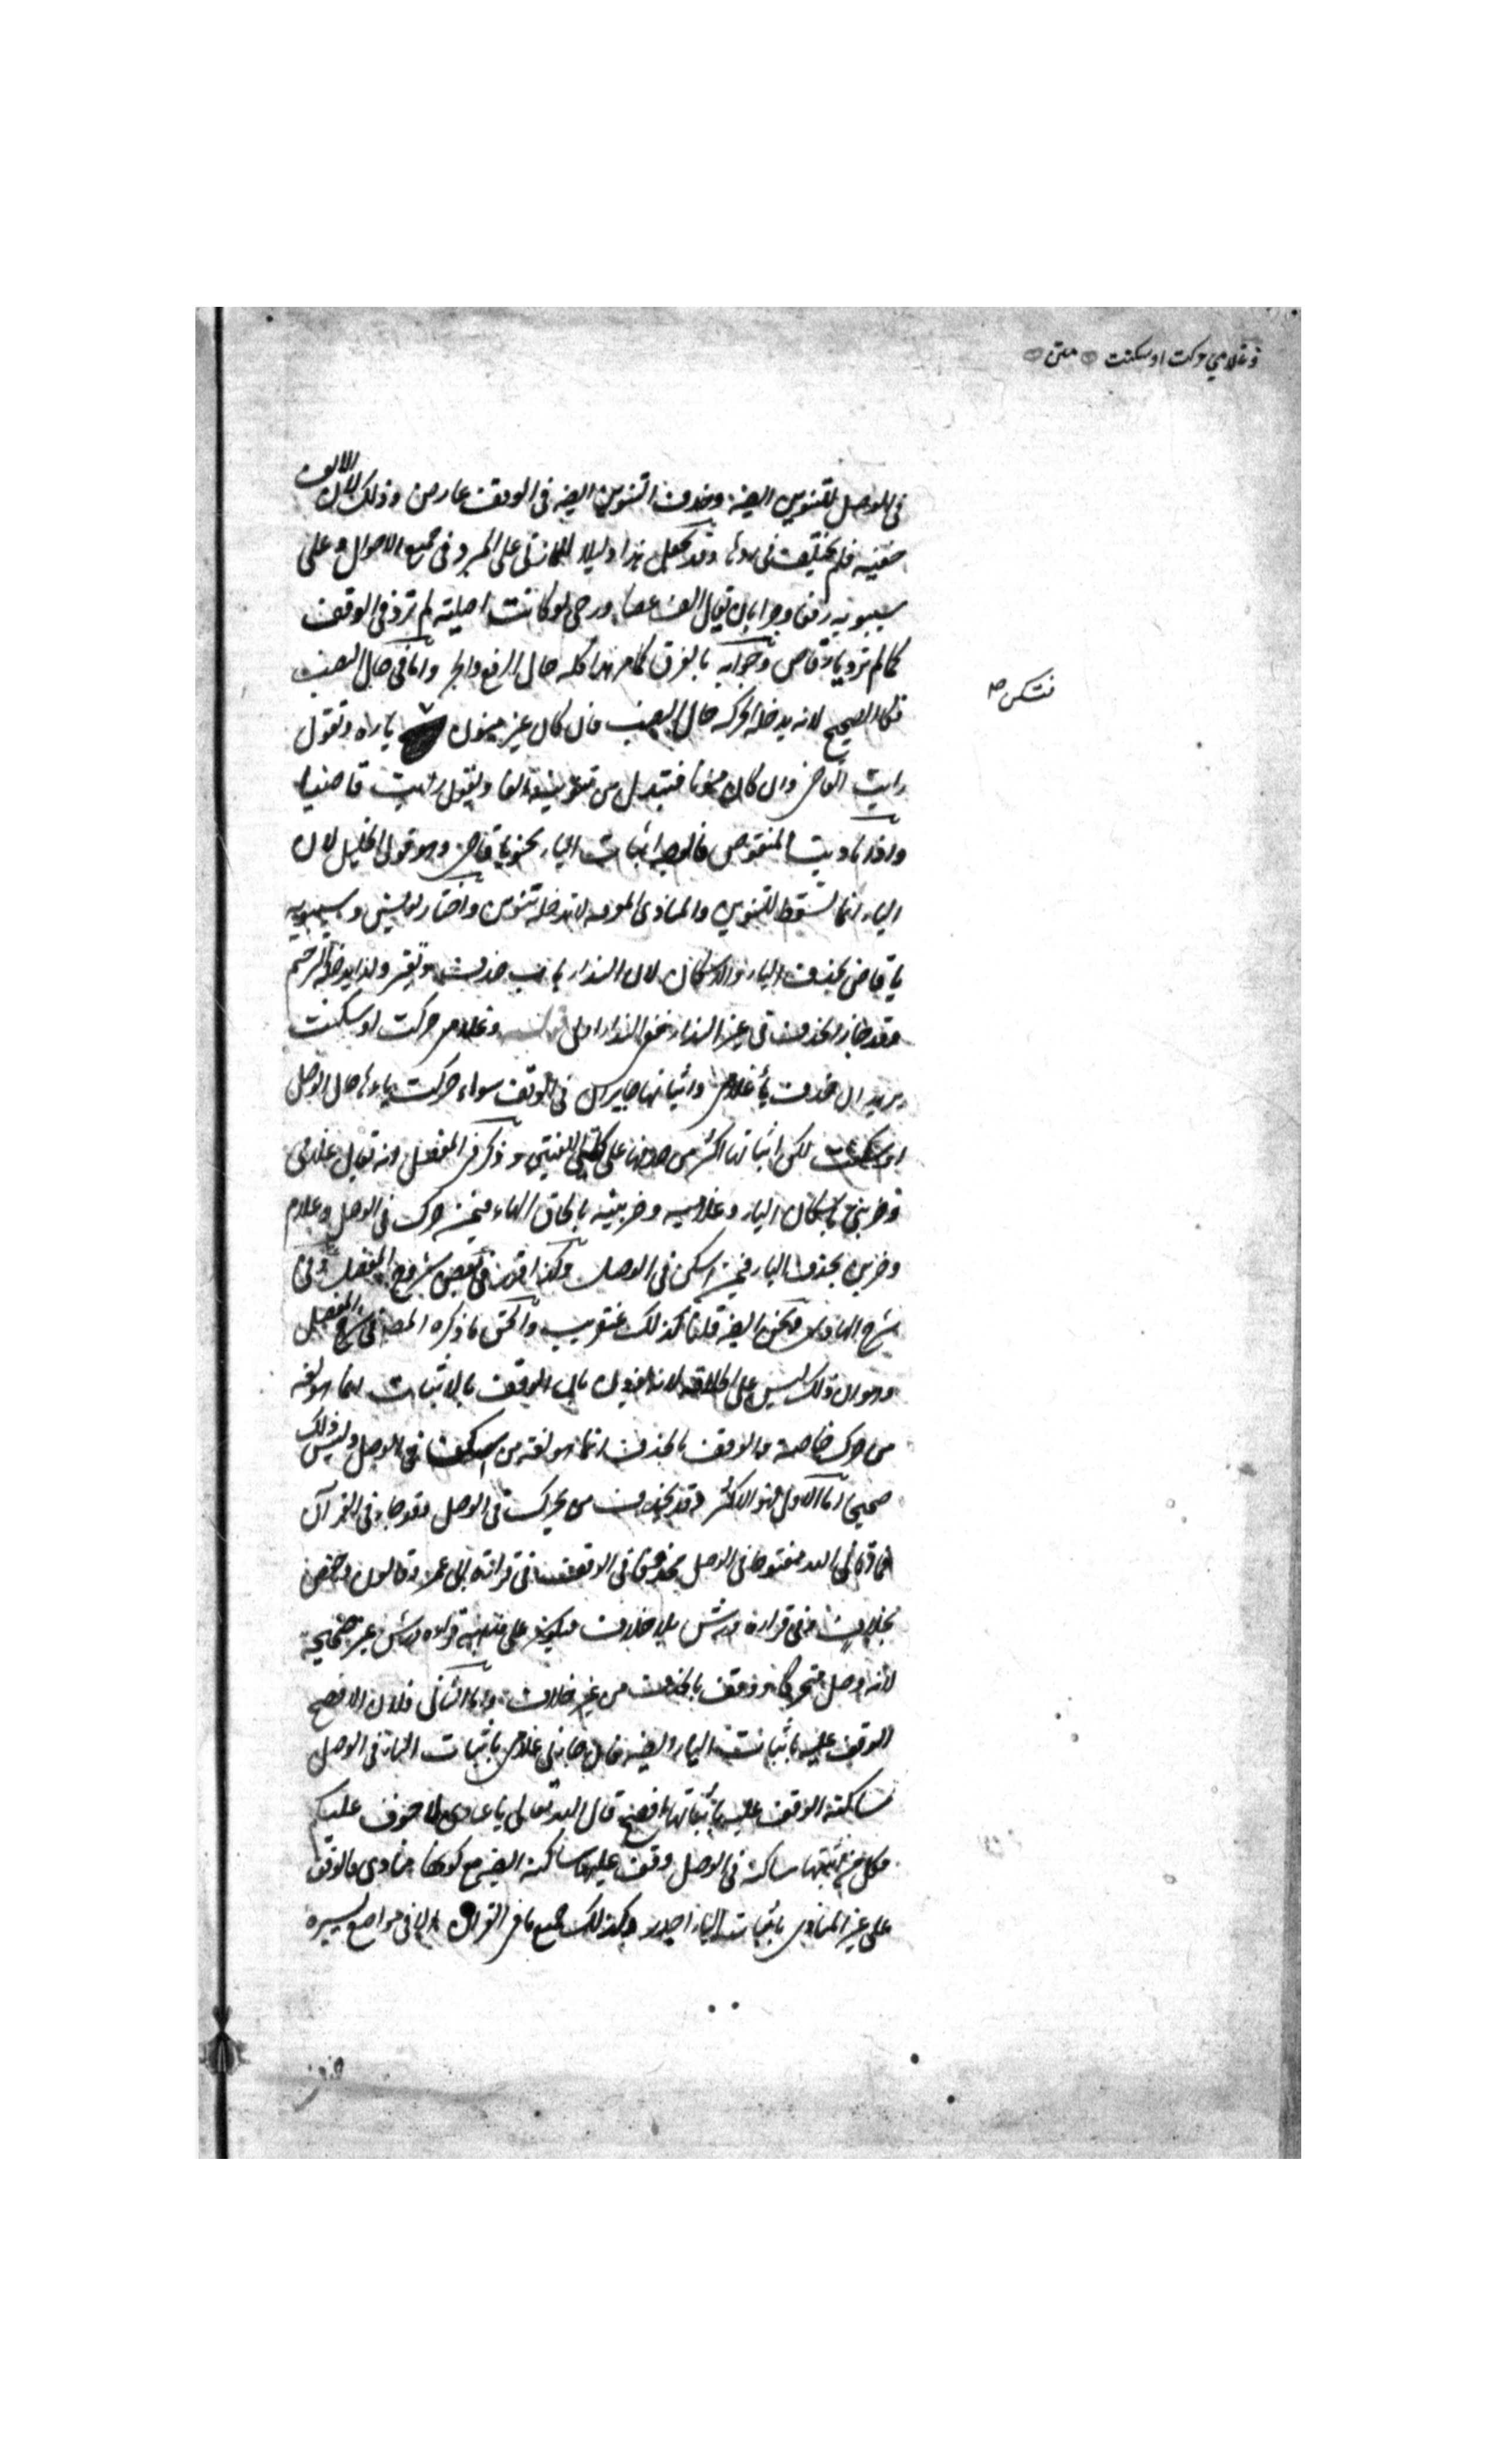 وغلامي حركت او سكنت متن
في الوصل للتنوين ايضا وحذف التنوين ايضا في الوقف عارض وذلك لان الالف
خفيفة فلم يختلف في ردها وقد يجعل هذا دليلا للمازني على المبرد في جميع الاحوال وعلى
سيبويه رفعا وجرا بان يقال الف عصا ورحى لو كانت اصلية لم ترد في الوقف
كما لم ترد ياء قاض وجوابه بالفرق كما مر هذا كله حال الرفع والجر واما في حال النصب
فكالصحيح لانه يدخله الحركة حال النصب فان كان غير منون ياءه وتقول
فتسكن
رايت القاضي وان كان منونا فتبدل من تنوينه الفا وتقول رايت قاضيا
واذا ناديت المنقوص فالوجه اثبات الياء نحو يا قاضي وهو قول الخليل لان
الياء انما تسقط للتنوين والمنادى المعرفة لا تدخله تنوين واختار يونس وسيبويه
يا قاض بحذف الياء والاسكان لان النداء باب حذف وتغير ولذا يدخله الترخيم
وقد جاز الحذف في غير النداء ففي النداء اولى وغلامي حركت او سكنت
يريد ان حذف ياء غلامي واثباتها جايزان في الوقف سواء حركت ياءها حال الوصل
او سكنت لكن اثباتها اكثر من حذفها على كلتي اللغتين وذكر في المفصل انه تقال غلامي
وضربني باسكان الياء وغلاميه وضربنيه بالحاق الهاء فيمن حرك في الوصل وغلام
وضربن بحذف الياء فيمن اسكن في الوصل وكذا في بعض شروح المفصل وفي
شرح الهادي ايضا قلنا كذلك والحق ما ذكره المصنف في شرح المفصل
وهو ان ذلك ليس على اطلاقه لانه يقول بان الوقف بالاثبات انما هو لغة
من حرك خاصة والوقف بالحذف انما هو لغة من اسكن في الوصل وليس ذلك
صحيحا اما الاول فهو الاكثر وقد يحذف من يحرك في الوصل وقد جاء في القران
فما آتاني الله مفتوحا في الوصل محذوفا في الوقف في قراءة ابي عمرو وقالون وحفص
بخلاف وفي قراءة ورش بلا خلاف فيكون على قوله قراءة ورش غير صحيحة
لانه وصل متحركا ووقف بالحذف من غير خلاف واما الثاني فلان الافصح
الوقف عليه باثبات الياء ايضا فان جاءني غلامي باثبات الياء في الوصل
ساكنة الوقف عليه باثباتها افصح قال الله تعالى يا عبادي لا خوف عليكم
فكل من اثبتها ساكنة في الوصل وقف عليها ساكنة ايضا مع كونها منادى فالوقف
على غير المنادى باثبات الياء اجدر وكذلك جميع ما في القران الا في مواضع يسيرة